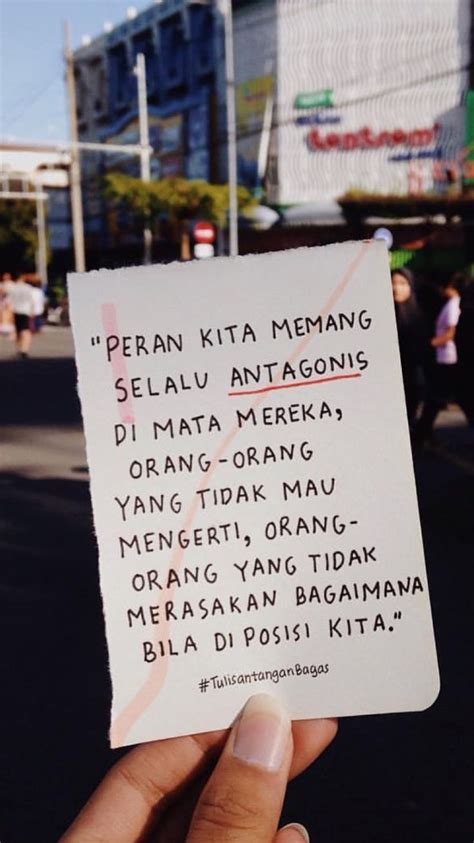 "PERAN KITA MEMANG
SELALU ANTAGONIS
DI MATA MEREKA,
ORANG-ORANG
YANG TIDAK MAU
MENGERTI, ORANG-
ORANG YANG TIDAK
MERASAKAN BAGAIMANA
BILA DI POSISI KITA."
#TulisantanganBagas